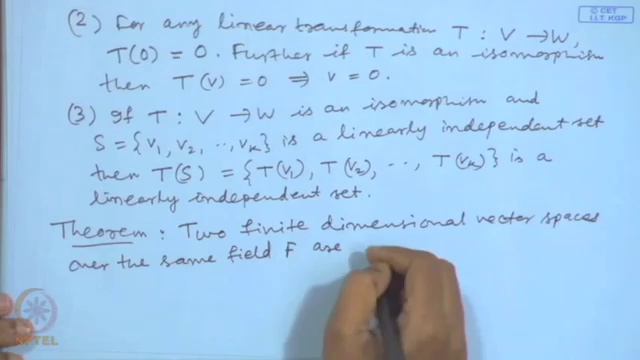 © CET
I.I.T. KGP
(2) For any linear transformation T : V → W,
T(0) = 0. Further if T is an isomorphism
then T(v) = 0 ⇒ v = 0.
(3) If T : V → W is an isomorphism and
S = {v₁, v₂, .., vₖ} is a linearly independent set
then T(S) = {T(v₁), T(v₂), .., T(vₖ)} is a
linearly independent set.
Theorem : Two finite dimensional vector spaces
over the same field F are
NPTEL